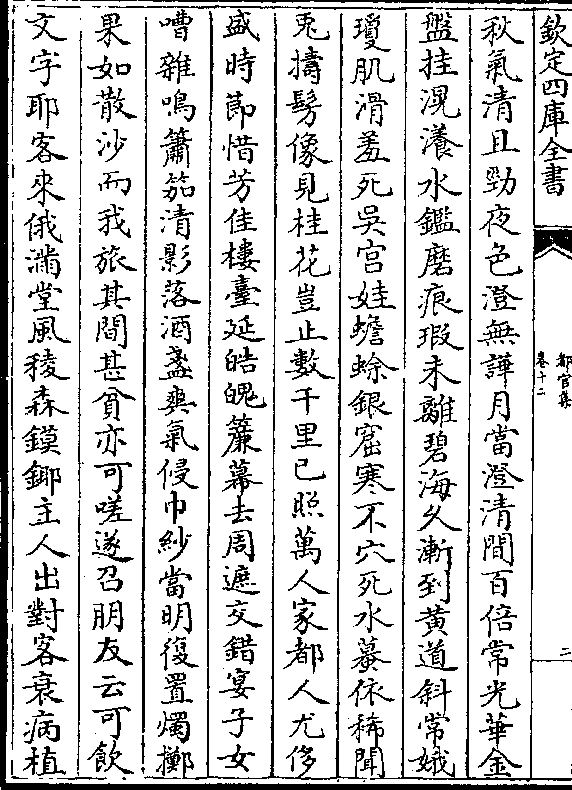 欽定四庫全書
都官集
卷十二
二
秋氣清且勁夜色澄無譁月當澄清間百倍常光華金
盤挂滉瀁水鑑磨痕瑕未離碧海久漸到黄道斜常娥
瓊肌滑羞死吳宫娃蟾蜍銀窟寒不穴死水蟇依稀聞
兎擣髣像見桂花豈止數千里已照萬人家都人尤侈
盛時節惜芳佳樓臺延皓魄簾幕去周遮交錯宴子女
嘈雜鳴簫笳清影落酒盞爽氣侵巾紗當明復置燭擲
果如散沙而我旅其間甚貧亦可嗟遂召朋友云可飲
文字耶客來俄滿堂風稜森鏌鎁主人出對客衰病植